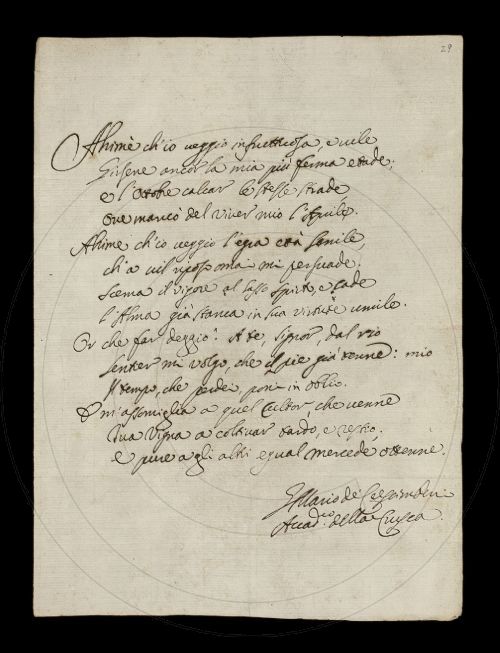 29
Ahimè ch'io veggio infruttuosa, e vile
Girsene ancor la mia più ferma etade;
e l'Ottobre calcar le stesse strade
Ove mancò del viver mio l'Aprile.
Ahimè ch'io veggio l'egra età senile,
ch'a vil riposo omai mi persuade:
scema il vigore al lasso spirto, e cade
l'Alma già stanca in sua virtute umile.
Or che far deggio? A te, Signor, dal rio
sentier mi volgo, che il piè già tenne: mio
Il tempo, che perdei, poni in oblio.
E m'assomiglia a quel Cultor che venne
Tua Vigna a coltivar tardo, e restio,
e pure agli altri egual mercede ottenne.
Mario de Crescimbeni
Accad.co della Crusca.